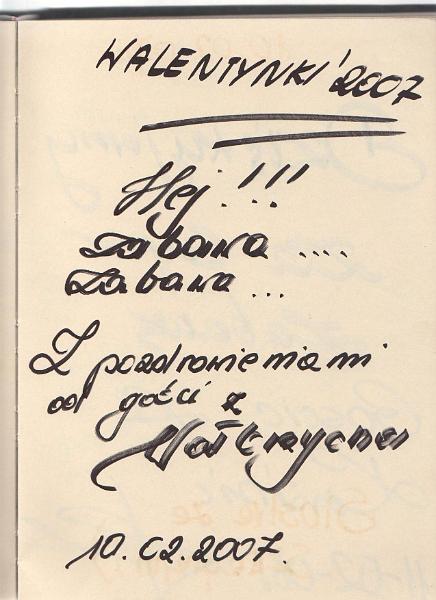 WALENTYNKI' 2007
Hej!!!
zabawa ....
zabawa ...
Z pozdrowieniami
od gości z
Wałbrzycha
10.02.2007.